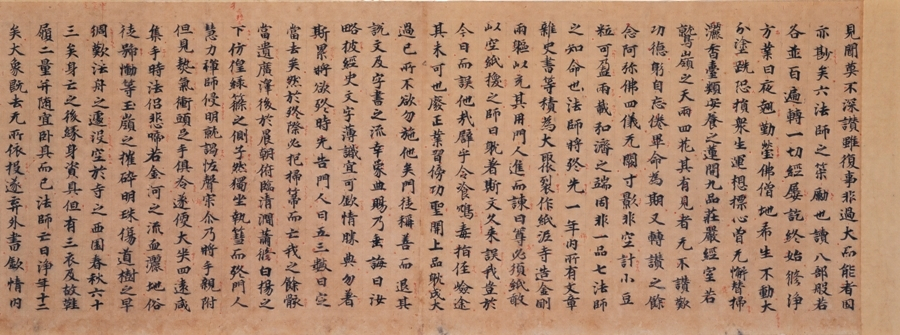 見聞莫不深讚雖復事非過大而能者固
亦尠矣六法師之策勵也讀八部般若
各並百遍轉一切經屢訖終始修淨
方業日夜勉勤瑩佛僧地希生不動大
分塗跣恐損衆生運想標心曾无懈替掃
灑香臺類安養之蓮開九品莊嚴經室若
鷲嶺之天雨四花其有見者无不讚歎
功德躬自忘倦畢命為期又轉讀之餘
念阿弥佛四儀无闕寸影非空計小豆
粒可盈兩載和濟之端固非一品七法師
之知命也法師將終先一年內所有文章
雜史書等積為大聚裂作紙泥寺造金剛
兩軀以充其用門人進而諫曰尊必須紙敢
以空紙換之師曰躭著斯文久来誤我豈於
今日而誤他哉譬乎令飡鴆毒指侄嶮途
其未可也廢正業習傍功聖開上品耽成大
過己所不欲勿施他矣門徒稱善而退其
說文及字書之流幸蒙曲賜乃垂誨曰汝
略披經史文字薄識宜可欽情勝典勿著
斯累將欲終時先告門人曰吾三數日定
當去矣然於終際必抱掃箒而亡我之餘骸
當遺廣澤後於晨朝俯臨清澗蕭條白楊之
下彷徨綠篠之側孑然獨坐執篲而終門人
慧力禪師侵明就謁恠聲寂尒乃將手親附
但見熱氣衝頭之手俱冷遂便大哭四遠咸
集于時法侶悲啼若金河之流血灑地俗
徒號慟等玉嶺之摧碎明珠傷道樹之早
凋歎法舟之遽沒窆於寺之西園春秋六十
三矣身亡之後緣身資具但有三衣及故鞋
履二量并随宜卧具而已法師亡日淨年十二
矣大象既去无所依投遂弃外書欽情内